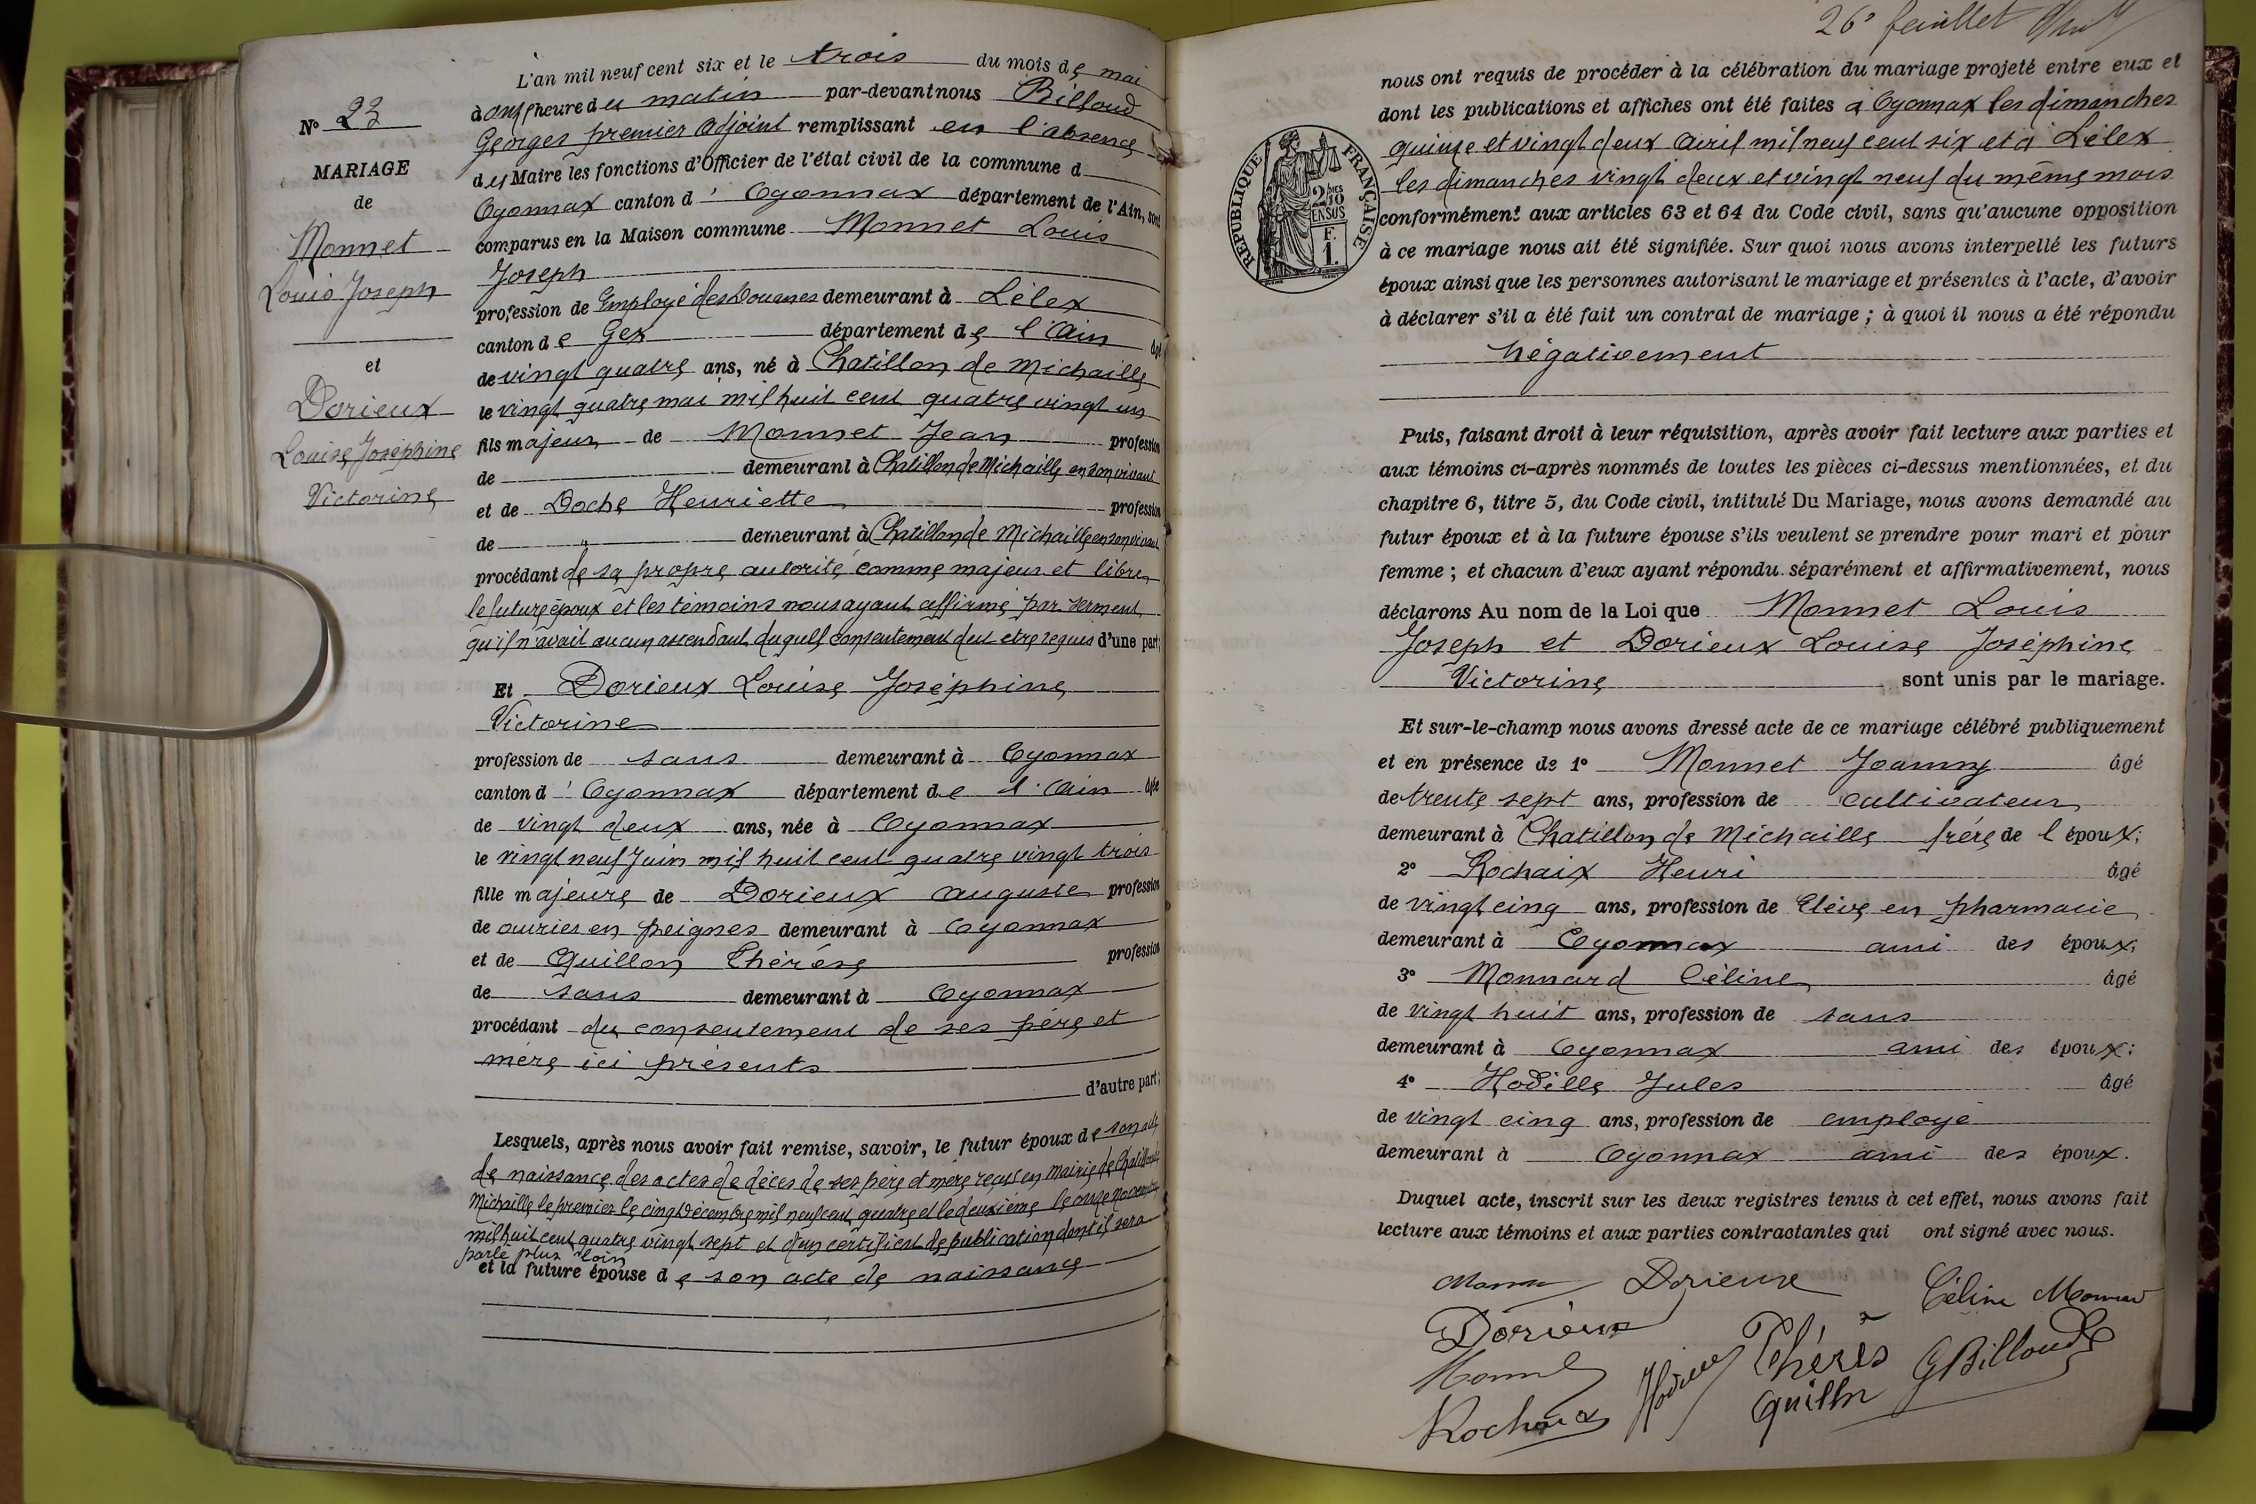 26e feuillet
L'an mil neuf cent six et le trois du mois de mai
à onze heure du matin par-devant nous Billoud
Georges premier adjoint remplissant en l'absence
du Maire les fonctions d'Officier de l'état civil de la commune d
Oyonnax canton d' Oyonnax département de l'Ain, sont
comparus en la Maison commune Monnet Louis
Joseph
profession de Employé des Douanes demeurant à Lélex
canton de Gex département de l'Ain âgé
de vingt quatre ans, né à Chatillon de Michaille
le vingt quatre mai mil huit cent quatre vingt un
fils majeur de Monnet Jean profession
de demeurant à Chatillon de Michaille en son vivant
et de Doche Henriette profession
de " demeurant à Chatillon de Michaille en son vivant
procédant de sa propre autorité comme majeur et libre
le future époux et les témoins nous ayant affirmé par serment
qu'il n'avait aucun ascendant duquel consentement dut etre requis d'une part;
Et Dorieux Louise Joséphine
Victorine
profession de sans demeurant à Oyonnax
canton d' Oyonnax département de l'Ain âgée
de vingt deux ans, née à Oyonnax
le vingt neuf Juin mil huit cent quatre vingt trois
fille majeure de Dorieux Auguste profession
de ouvrier en peignes demeurant à Oyonnax
et de Guillon Thérèse profession
de sans demeurant à Oyonnax
procédant du consentement de ses père et
mère ici présents
d'autre part;
Lesquels, après nous avoir fait remise, savoir, le futur époux de son acte
de naissance des actes de décès de ses père et mère reçus en mairie de Chatillon de
Michaille le premier le cinq Décembre mil neuf cent quatre et le deuxième le onze Novembre
mil huit cent quatre vingt sept et d'un certificat de publication dont il sera
parlé plus loin
et la future épouse de son acte de naissance
N° 23
MARIAGE
de
Monnet
Louis Joseph
et
Dorieux
Louise Joséphine
Victorine
nous ont requis de procéder à la célébration du mariage projeté entre eux et
dont les publications et affiches ont été faites à Oyonnax les dimanches
quinze et vingt deux avril mil neuf cent six et à Lélex
les dimanches vingt deux et vingt neuf du même mois
conformément aux articles 63 et 64 du Code civil, sans qu'aucune opposition
à ce mariage nous ait été signifiée. Sur quoi nous avons interpellé les futurs
époux ainsi que les personnes autorisant le mariage et présentes à l'acte, d'avoir
à déclarer s'il a été fait un contrat de mariage ; à quoi il nous a été répondu
négativement
RÉPUBLIQUE FRANÇAISE
2 DIES 10
EN SUS
F.
1.
Puis, faisant droit à leur réquisition, après avoir fait lecture aux parties et
aux témoins ci-après nommés de toutes les pièces ci-dessus mentionnées, et du
chapitre 6, titre 5, du Code civil, intitulé Du Mariage, nous avons demandé au
futur époux et à la future épouse s'ils veulent se prendre pour mari et pour
femme ; et chacun d'eux ayant répondu séparément et affirmativement, nous
déclarons Au nom de la Loi que Monnet Louis
Joseph et Dorieux Louise Joséphine
Victorine sont unis par le mariage.
Et sur-le-champ nous avons dressé acte de ce mariage célébré publiquement
et en présence de 1° Monnet Joanny âgé
de trente sept ans, profession de cultivateur
demeurant à Chatillon de Michaille frère de l'époux;
2° Rochaix Henri âgé
de vingt cinq ans, profession de Elève en pharmacie
demeurant à Oyonnax ami des époux;
3° Monnard Céline âgé
de vingt huit ans, profession de sans
demeurant à Oyonnax ami des époux;
4° Hodille Jules âgé
de vingt cinq ans, profession de employé
demeurant à Oyonnax ami des époux.
Duquel acte, inscrit sur les deux registres tenus à cet effet, nous avons fait
lecture aux témoins et aux parties contractantes qui ont signé avec nous.
Dorieux Céline
Dorieux
Thérèse GBilloud
Rochaix Hodille